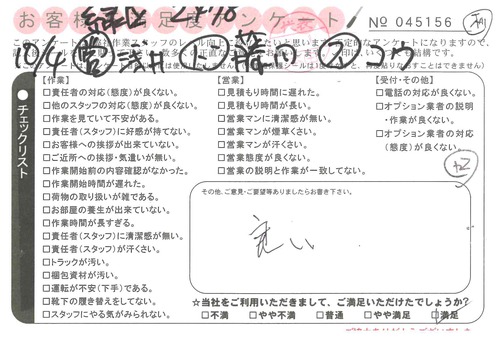 お客様満足度アンケート
No 045156
【作業】
□責任者の対応(態度)が良くない。
□他のスタッフの対応(態度)が良くない。
□作業を見ていて不安がある。
□責任者(スタッフ)に好感が持てない。
□お客様への挨拶が出来ていない。
□ご近所への挨拶・気遣いが無い。
□作業開始前の内容確認がなかった。
□作業開始時間が遅れた。
□荷物の取り扱いが雑である。
□お部屋の養生が出来ていない。
□作業時間が長すぎる。
□責任者(スタッフ)に清潔感が無い。
□責任者(スタッフ)が汗くさい。
□トラックが汚い。
□梱包資材が汚い。
□運転が不安(下手)である。
□靴下の履き替えをしてない。
□スタッフにやる気がみられない。
【営業】
□見積もり時間に遅れた。
□見積もり時間が長い。
□営業マンに清潔感が無い。
□営業マンが煙草くさい。
□営業マンが汗くさい。
□営業態度が良くない。
□営業の説明と作業が一致してない。
【受付・その他】
□電話の対応が良くない。
□オプション業者の説明
・作業が良くない。
□オプション業者の対応
(態度)が良くない。
チェックリスト
その他、ご意見・ご要望等ありましたらお書き下さい。
良い
☆当社をご利用いただきまして、ご満足いただけたでしょうか?
□不満 □やや不満 □普通 □やや満足 □満足